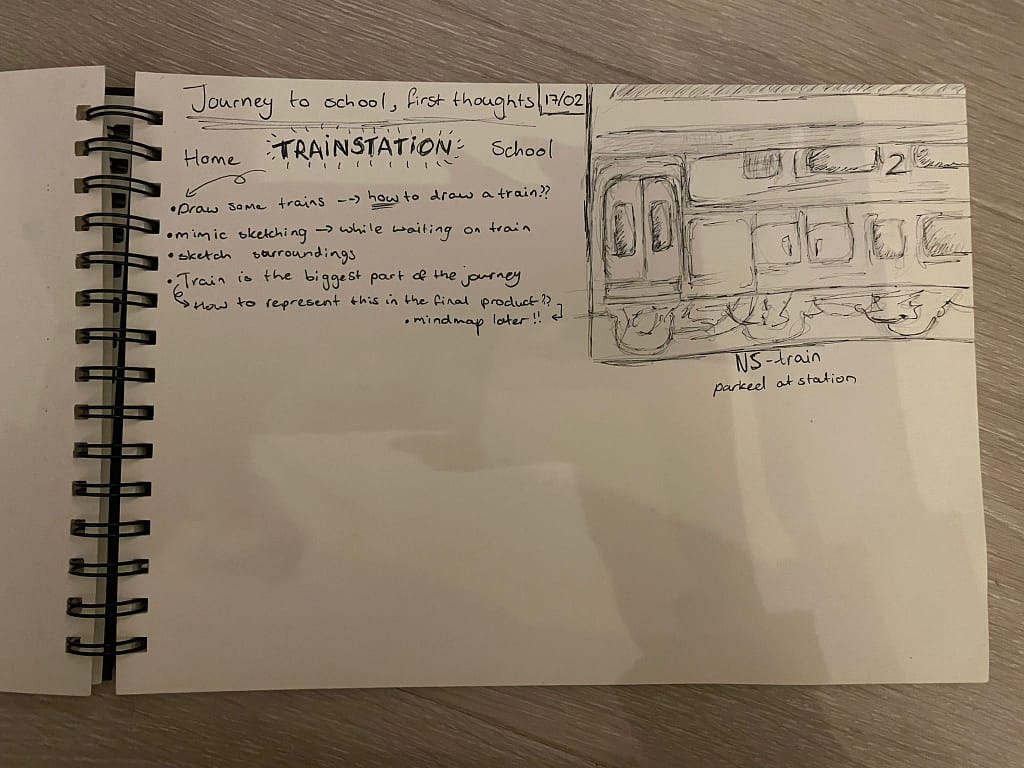 Journey to school, first thoughts 17/02
Home TRAINSTATION School
• Draw some trains --> how to draw a train??
• mimic sketching -> while waiting on train
• sketch sorroundings
• Train is the biggest part of the journey
↳ How to represent this in the final product??
• mindmap later!!
2
NS-train
parked at station